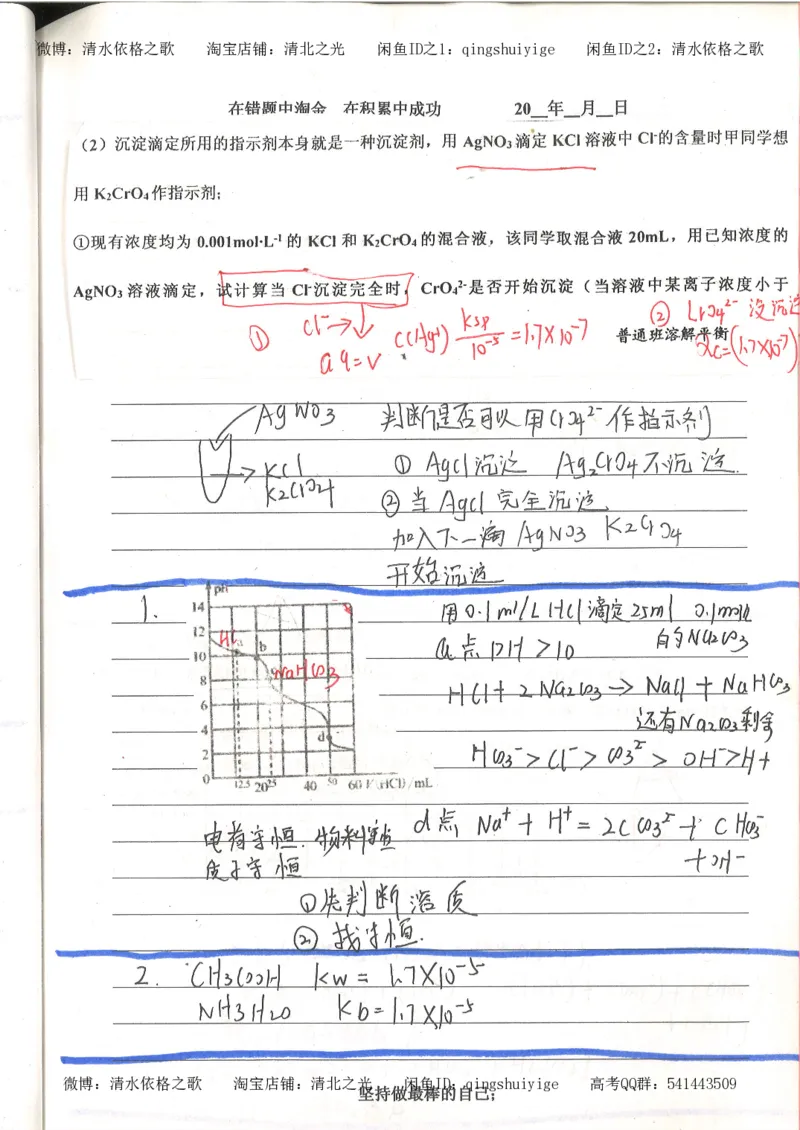 微博：清水依格之歌 淘宝店铺：清北之光 闲鱼ID之1：qingshuiyige 闲鱼ID之2：清水依格之歌
在错题中淘金 在积累中成功 20__年__月__日
（2）沉淀滴定所用的指示剂本身就是一种沉淀剂，用 AgNO₃滴定 KCl 溶液中 Cl⁻的含量时甲同学想
用 K₂CrO₄作指示剂；
①现有浓度均为 0.001mol·L⁻¹ 的 KCl 和 K₂CrO₄的混合液，该同学取混合液 20mL，用已知浓度的
AgNO₃ 溶液滴定，试计算当 Cl⁻沉淀完全时，CrO₄²⁻是否开始沉淀（当溶液中某离子浓度小于
① Cl⁻→↓ C(Ag⁺) Ksp/10⁻⁵ =1.7×10⁻⁷ ② CrO₄²⁻ 没沉淀
aq=v 普通班溶解平衡 Qc=(1.7×10⁻⁷)
AgNO3 判断是否可以用CrO4²⁻作指示剂
→KCl ① AgCl沉淀 Ag2CrO4不沉淀
K2CrO4 ②当AgCl完全沉淀
加入下一滴AgNO3 K2CrO4
开始沉淀
1. 用0.1ml/L HCl滴定25ml 0.1mol/L
的Na2CO3
a点PH>10
HCl+2Na2CO3→NaCl+NaHCO3
还有Na2CO3剩余
HCO3⁻>Cl⁻>CO3²⁻>OH⁻>H+
pH
14
12
10
8
6
4
2
0 12.5 20 25 40 50 60 V(HCl)/mL
HCl a b NaHCO3 d
电荷守恒. 物料守恒 d点 Na⁺+H⁺=2CCO3²⁻+CHCO3⁻
+OH⁻
质子守恒
①先判断溶质
②找守恒.
2. CH3COOH Kw=1.7×10⁻⁵
NH3H2O Kb=1.7×10⁻⁵
微博：清水依格之歌 淘宝店铺：清北之光 闲鱼ID：qingshuiyige 高考QQ群：541443509
坚持做最棒的自己；